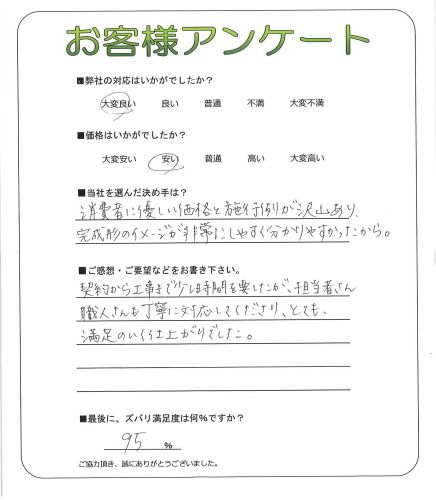 お客様アンケート
■弊社の対応はいかがでしたか?
大変良い 良い 普通 不満 大変不満
■価格はいかがでしたか?
大変安い 安い 普通 高い 大変高い
■当社を選んだ決め手は?
消費者に優しい価格と施行例が沢山あり、
完成形のイメージが非常にしやすく分かりやすかったから。
■ご感想・ご要望などをお書き下さい。
契約から工事まで少し時間を要したが、担当者さん
職人さんも丁寧に対応してくださり、とても、
満足のいく仕上がりでした。
■最後に、ズバリ満足度は何%ですか?
95 %
ご協力頂き、誠にありがとうございました。